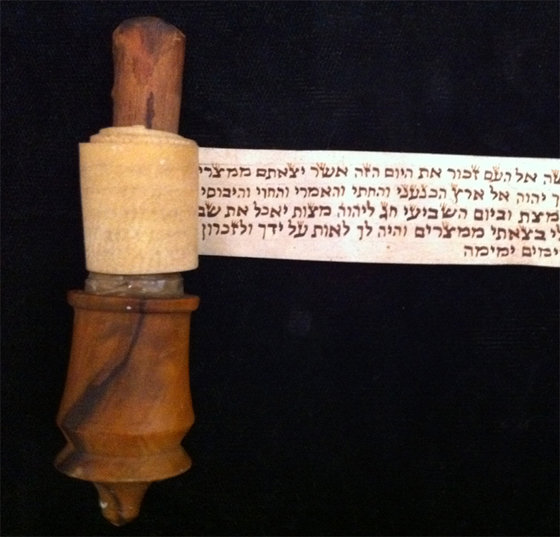 שה אל העם זכור את היום הזה אשר יצאתם ממצרי
ך יהוה אל ארץ הכנעני והחתי והאמרי והחוי והיבוסי
מצת וביום השביעי חג ליהוה מצות יאכל את שב
לי בצאתי ממצרים והיה לך לאות על ידך ולזכרון
ימים ימימה